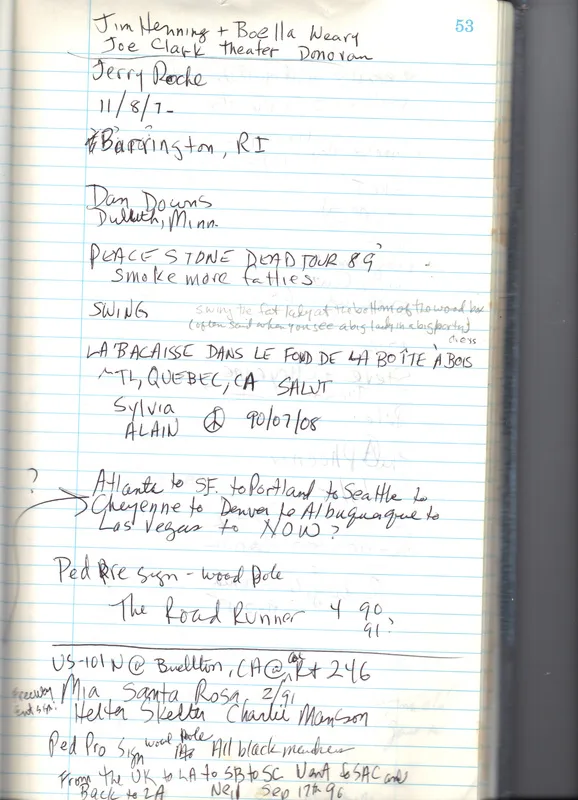 53
Jim Henning + Boella Weary
Joe Clark theater Donovan
Jerry Roche
11/8/7-
Barrington, RI
Dan Downs
Duluth, Minn.
PEACE STONE DEAD TOUR 89'
Smoke more fatties
SWING swing the fat lady at the bottom of the wood box
(often said when you see a big lady in a big party)
dress
LA BACAISSE DANS LE FOND DE LA BOÎTE À BOIS
MTL, QUEBEC, CA SALUT
Sylvia
ALAIN ☮ 90/07/08
? Atlanta to SF. to Portland to Seattle to
Cheyenne to Denver to Albuquaque to
Las Vegas to NOW?
Ped Xre sign - wood pole
The Road Runner 4 90
91?
US-101 N @ Buellton, CA @ Rt 246
Mia Santa Rosa 2/91
Freeway
Ent sign
Helter Skelter Charlie Manson
Ped Pro Sign wood pole All black
From the UK to LA to SB to SC Want to SAC and
Back to LA Neil Sep 17th 90